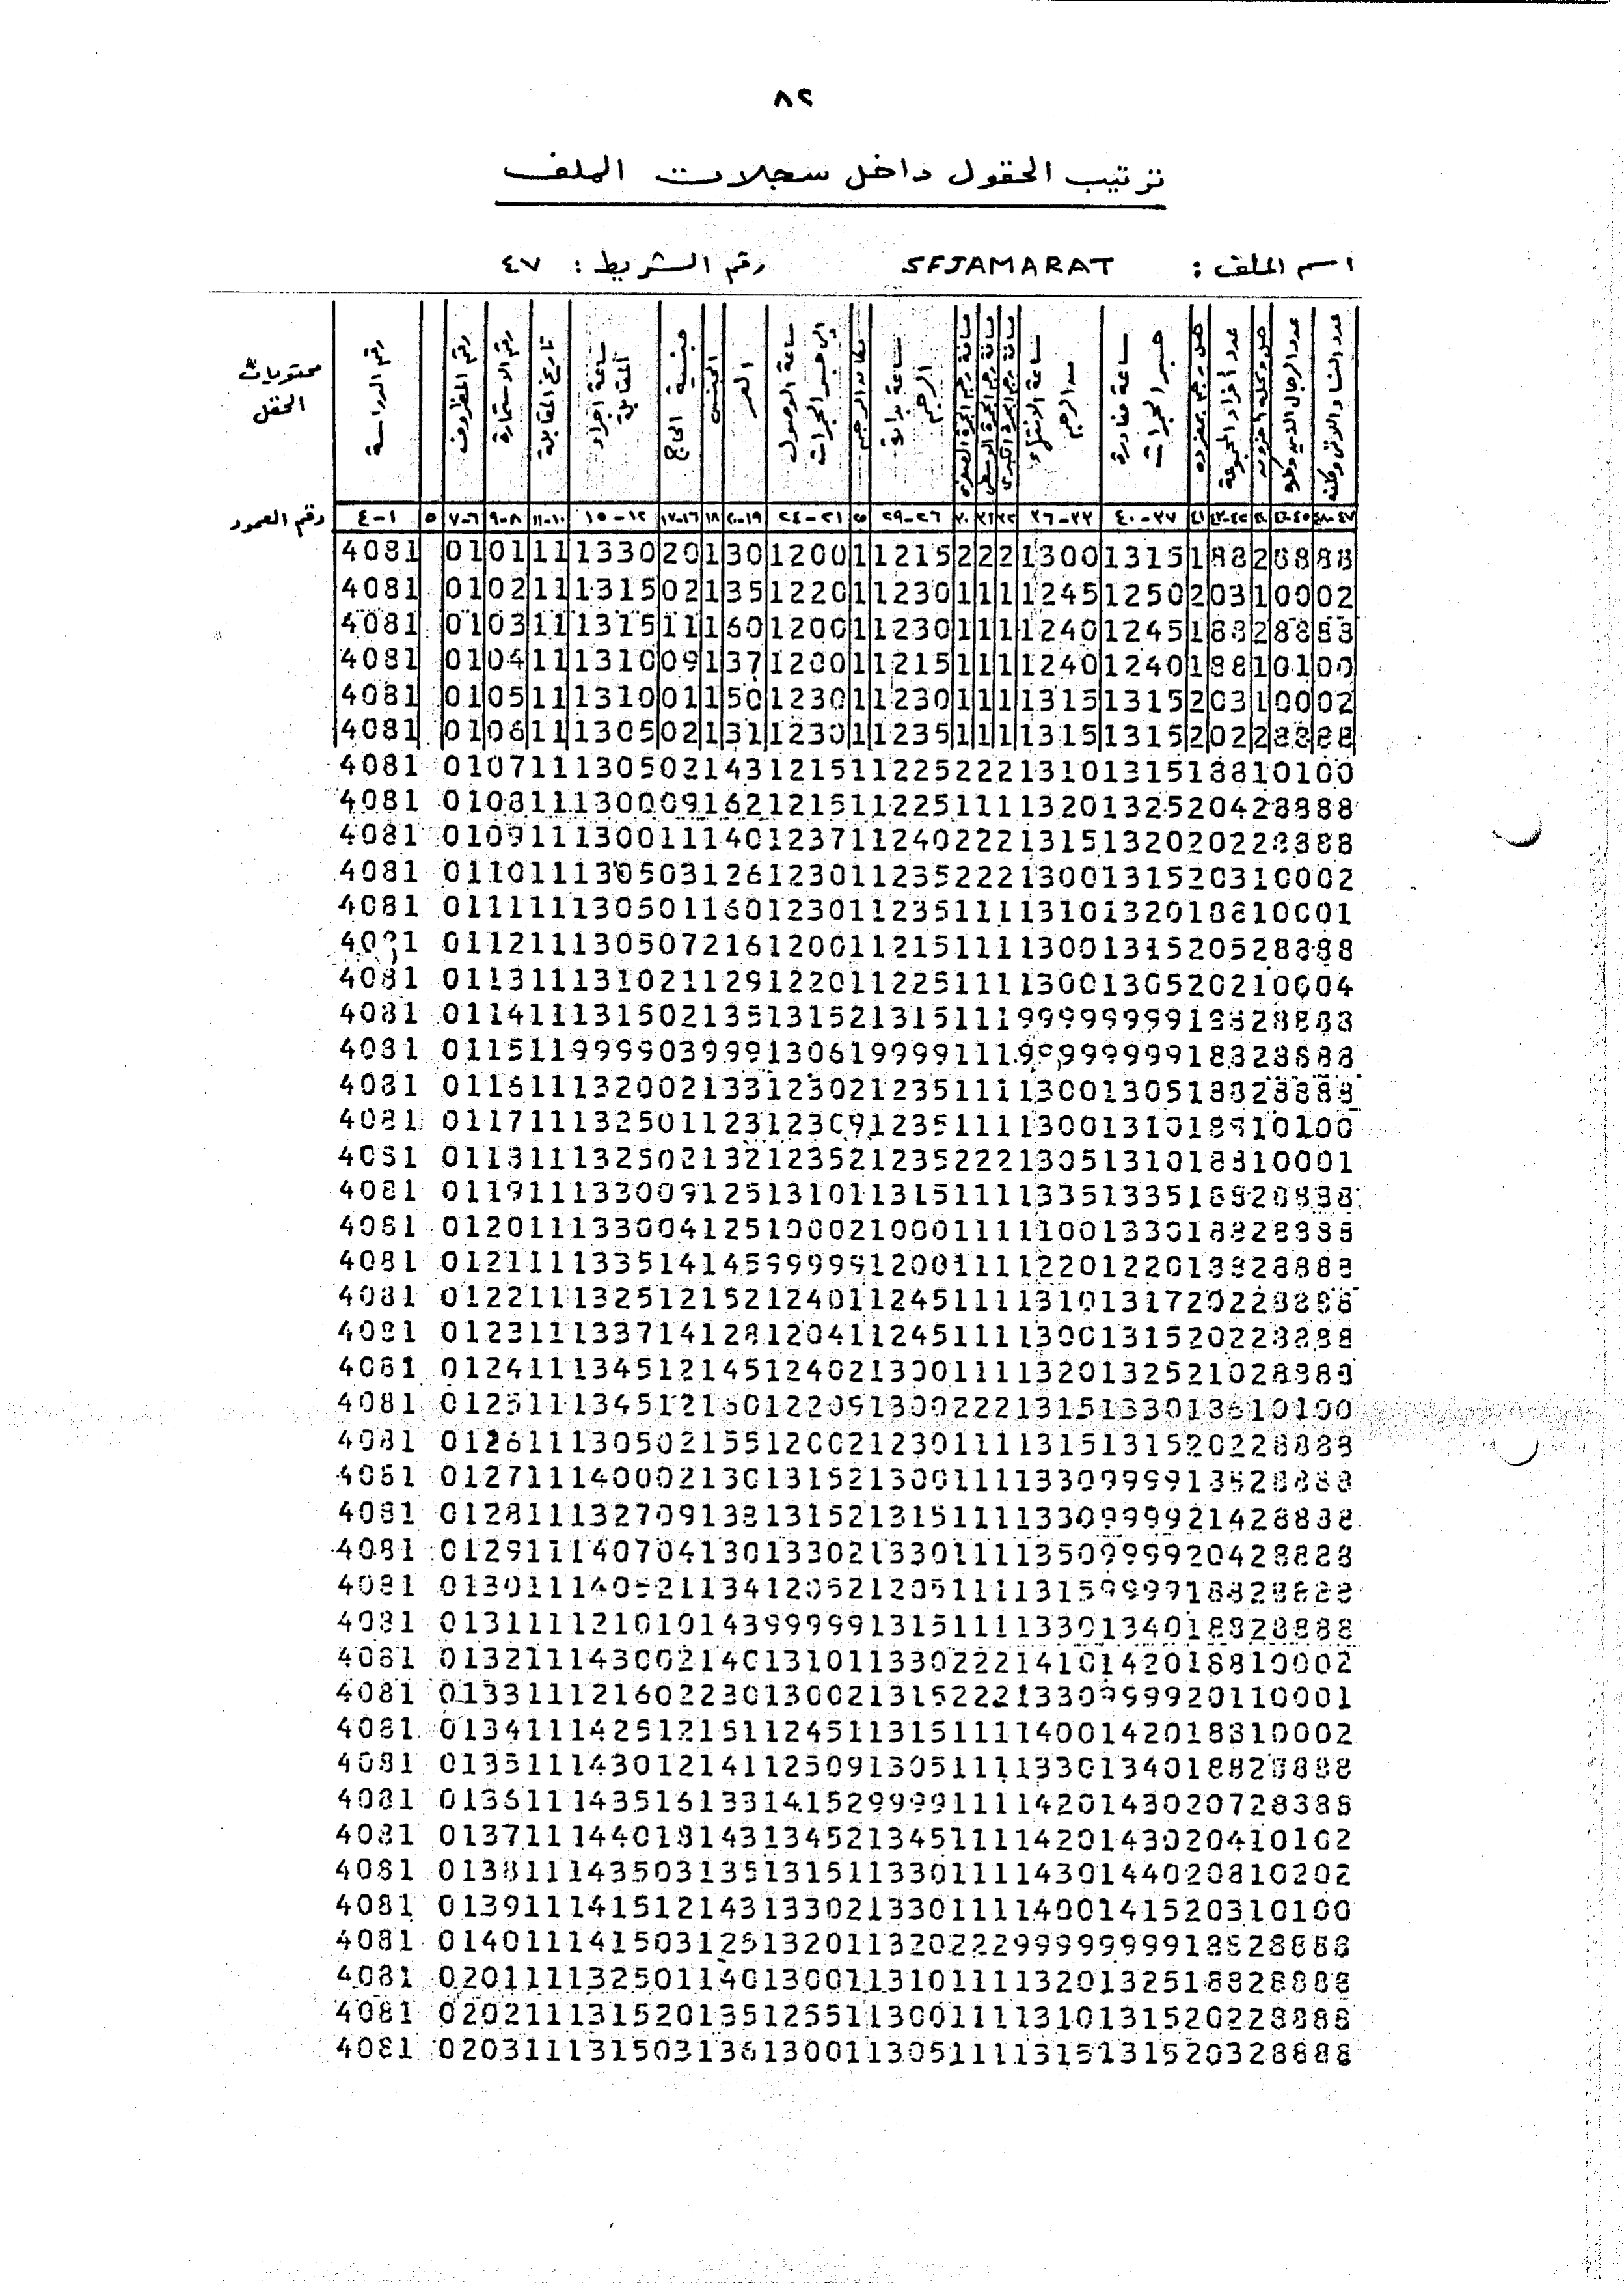 ٨٢
ترتيب الحقول داخل سجلات الملف
اسم الملف : SFJAMARAT رقم الشريط : ٤٧
محتويات الحقل
رقم الدراسة
رقم المظروف
رقم الاستمارة
تاريخ المقابلة
ساعة اجراء المقابلة
جنسية الحاج
الجنس
العمر
ساعة الوصول إلى جسر الجمرات
مكان الرجم
ساعة بداية الرجم
ساعة الانتهاء من الرجم
ساعة مغادرة جسر الجمرات
هل رجم بمفرده
عدد أفراد المجموعة
هل وكله آخرون
رقم العمود
١-٤ ٥ ٦-٧ ٨-٩ ١٠-١١ ١٢-١٥ ١٦-١٧ ١٨ ١٩-٢٠ ٢١-٢٤ ٢٥ ٢٦-٢٩ ٣٠ ٣١ ٣٢ ٣٣-٣٦ ٣٧-٤٠ ٤١ ٤٢-٤٣ ٤٤ ٤٥-٤٦ ٤٧-٤٨
4081 01011113302013012001121522213001315188288888
4081 0102111315021351220112301111245125020310002
4081 01031113151116012001123011112401245188288888
4081 0104111310091371200112151111240124018810100
4081 0105111310011501230112301111315131520310002
4081 01061113050213112301123511113151315202288888
4081 0107111305021431215112252221310131518810100
4081 0108111300091621215112251111320132520428888
4081 0109111300111401237112402221315132020228888
4081 0110111305031261230112352221300131520310002
4081 0111111305011601230112351111310132018810001
4081 0112111305072161200112151111300131520528888
4081 0113111310211291220112251111300130520210004
4081 0114111315021351315213151119999999918828888
4081 0115119999903999130619999111999999991 8828888
4081 0116111320021331230212351111300130518828888
4081 0117111325011231230912351111300131018810100
4081 0118111325021321235212352221305131018810001
4081 0119111330091251310113151111335133518828888
4081 0120111330041251000210001111100133018828888
4081 0121111335141459999912001111220122018828888
4081 0122111325121521240112451111310131720228888
4081 0123111337141281204112451111300131520228888
4081 0124111345121451240213001111320132521028888
4081 0125111345121601220913002221315133018810100
4081 0126111305021551200212301111315131520228888
4081 0127111400021301315213001111330999918828888
4081 0128111327091381315213151111330999921428888
4081 0129111407041301330213301111350999920428888
4081 0130111405211341205212051111315999918828888
4081 0131111210101439999913151111330134018828888
4081 0132111430021401310113302221410142018810002
4081 0133111216022301300213152221330999920110001
4081 0134111425121511245113151111400142018810002
4081 0135111430121411250913051111330134018828888
4081 0136111435161331415299991111420143020728888
4081 0137111440181431345213451111420143020410102
4081 0138111435031351315113301111430144020810202
4081 0139111415121431330213301111400141520310100
4081 0140111415031251320113202229999999918828888
4081 0201111325011401300113101111320132518828888
4081 0202111315201351255113001111310131520228888
4081 0203111315031361300113051111315131520328888